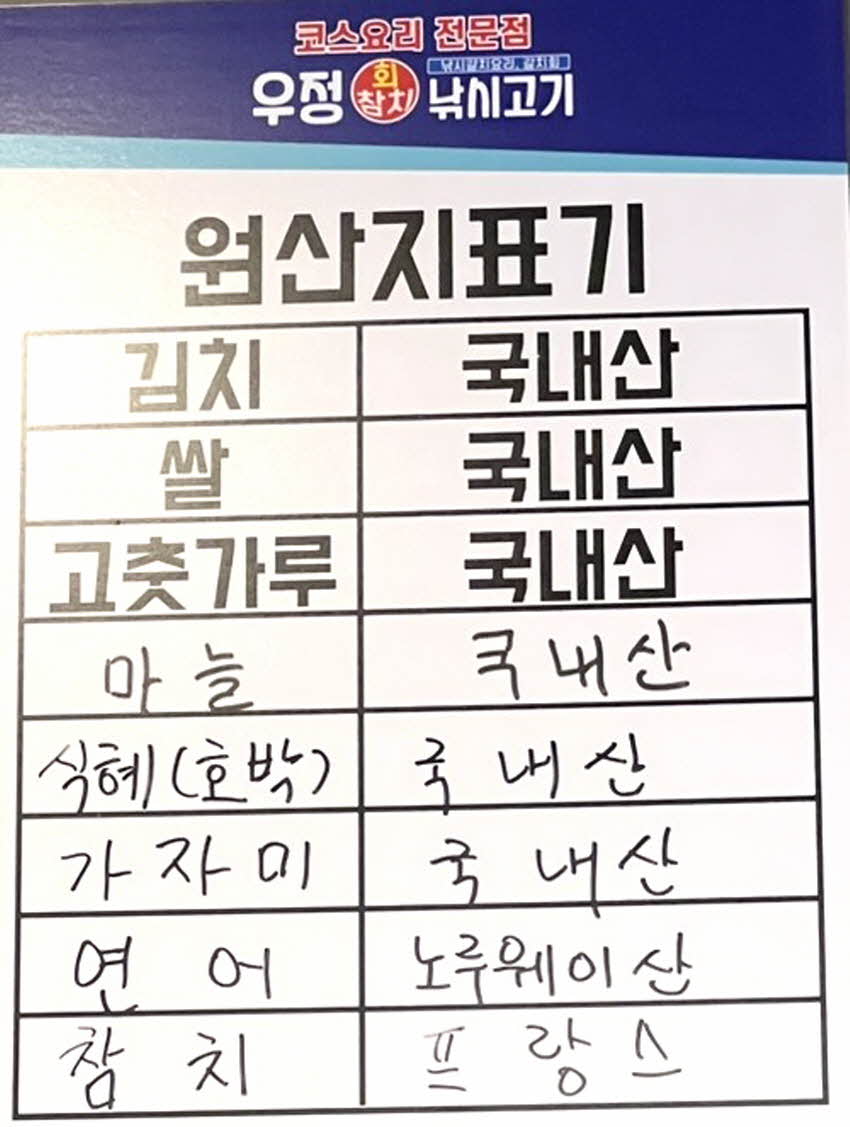 코스요리 전문점
우정 회참치 낚시고기
낚시갈치요리, 갈치회
원산지표기
김치 국내산
쌀 국내산
고춧가루 국내산
마늘 국내산
식혜(호박) 국내산
가자미 국내산
연어 노루웨이산
참치 프랑스